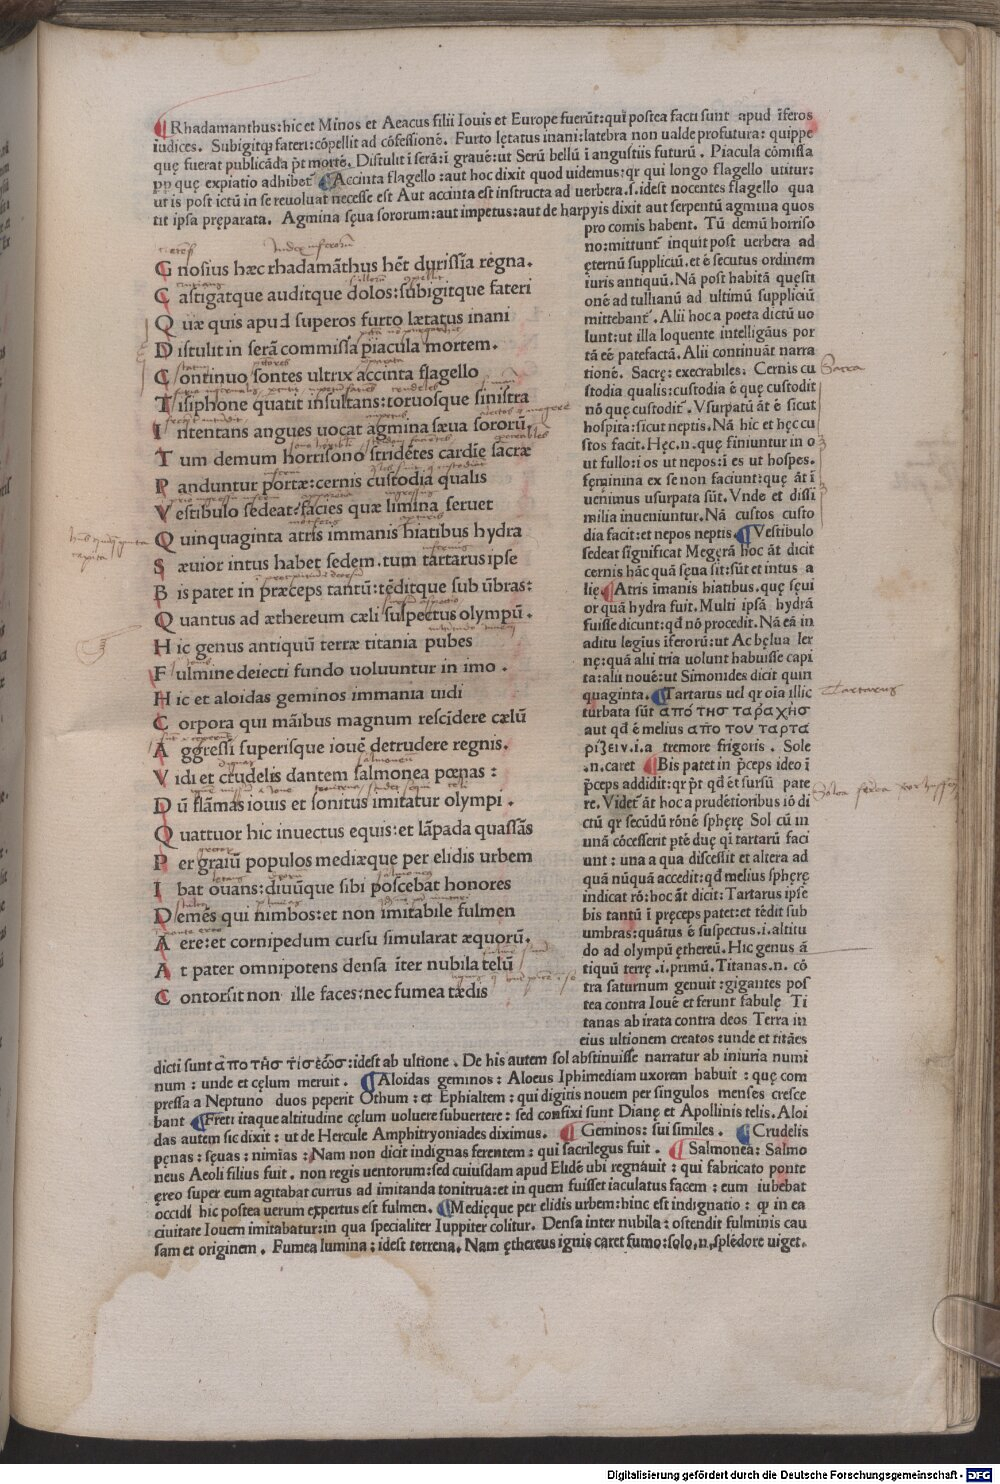 Rhadamanthus:hic et Minos et Aeacus filii Iouis et Europe fuerūt:qui postea facti sunt apud īferos
iudices. Subigitqɜ fateri:cōpellit ad cōfessionē. Furto lętatus inani:latebra non ualde profutura: quippe
quę fuerat publicāda p̄t mortē. Distulit ī serā:ī grauē:ut Serū bellū ī angustiis futurū. Piacula cōmissa
quę expiatio adhibet̄ Accinta flagello:aut hoc dixit quod uidemus:qr qui longo flagello utitur:
ut is post ictū in se reuoluat necesse est Aut accinta est instructa ad uerbera.s.idest nocentes flagello qua
tit ipsa pręparata. Agmina sęua sororum:aut impetus:aut de harpyis dixit aut serpentū agmina quos
G nosius hæc rhadamāthus hēt durissīa regna.
C astigatque auditque dolos:subigitque fateri
Q uæ quis apud superos furto lætatus inani
D istulit in serā commissa piacula mortem.
C ontinuo sontes ultrix accinta flagello
T isiphone quatit insultans:toruosque sinistra
I ntentans angues uocat agmina sæua sororū.
T um demum horrisono stridētes cardīe sacræ
P anduntur portæ:cernis custodia qualis
V estibulo sedeat:facies quæ limina seruet
Q uinquaginta atris immanis hiatibus hydra
S æuior intus habet sedem.tum tartarus ipse
B is patet in præceps tantū:tēditque sub ūbras:
Q uantus ad æthereum cæli suspectus olympū.
H ic genus antiquū terræ titania pubes
F ulmine deiecti fundo uoluuntur in imo.
H ic et aloidas geminos immania uidi
C orpora qui māibus magnum rescīdere cælū
A ggressi superisque iouē detrudere regnis.
V idi et crudelis dantem salmonea pœnas:
D ū flāmas iouis et sonitus imitatur olympi.
Q uattuor hic inuectus equis:et lāpada quassās
P er graiū populos mediæque per elidis urbem
I bat ouans:diuūque sibi poscebat honores
D emēs qui nimbos:et non imitabile fulmen
A ere:et cornipedum cursu simularat æquorū.
A t pater omnipotens densa īter nubila telū
C ontorsit non ille faces:nec fumea tædis
pro comis habent. Tū demū horriso
no:mittunt̄ inquit post uerbera ad
ęternū suppliciū.et ē secutus ordinem
iuris antiquū. Nā post habitā quęsti
onē ad tullianū ad ultimū suppliciū
mittebant̄. Alii hoc a poeta dictū uo
lunt:ut illa loquente intelligāus por
tā eē patefactā. Alii continuāt narra
tionē. Sacrę:execrabiles. Cernis cu
stodia qualis:custodia ē quę custodit
nō quę custodit̄. Vsurpatū āt ē sicut
hospita:sicut neptis. Nā hic et hęc cu
stos facit. Hęc.n.quę finiuntur in o
ut fullo:ī os ut nepos:ī es ut hospes.
fęminina ex se non faciunt:quę āt ī
uenimus usurpata sūt. Vnde et dissi
milia inueniuntur. Nā custos custo
dia facit:et nepos neptis. Vestibulo
sedeat significat Megęrā hoc āt dicit
cernis hāc quā sęua sit:sūt et intus a
lię. Atris īmanis hiatibus.quę sęui
or quā hydra fuit. Multi ipsā hydrā
fuisse dicunt:qđ nō procedit. Nā eā in
aditu legius īferorū:ut Ac bęlua ler
nę:quā alii tria uolunt habuisse capi
ta:alii nouē:ut Simonides dicit quin
quaginta. Tartarus uel qr oīa illic
turbata sūt ἀπό τησ ταραχησ
aut qđ ē melius ἀπο του ταρτα
ρίζειν.i.a tremore frigoris. Sole
.n.caret Bis patet in p̄ceps ideo ī
p̄ceps addidit:qr p̄t qđ et sursū pate
re. Videt̄ āt hoc a prudētioribus iō di
ctū qr secūdū rōnē sphęrę Sol cū in
unā cōcesserit ptē duę qī tartarū faci
unt: una a qua discessit et altera ad
quā nūquā accedit:qđ melius sphęrę
indicat rō:hoc āt dicit:Tartarus ipse
bis tantū ī pręceps patet:et tēdit sub
umbras:quātus ē suspectus.i.altitu
do ad olympū ęthereū. Hic genus ā
tiquū terrę.i.primū. Titanas.n.cō
tra saturnum genuit:gigantes pos
tea contra Iouē et ferunt fabulę Ti
tanas ab irata contra deos Terra in
eius ultionem creatos:unde et titāes
dicti sunt ἀπο τησ τίσεωσ:idest ab ultione. De his autem sol abstinuisse narratur ab iniuria numi
num: unde et cęlum meruit. Aloidas geminos: Aloeus Iphimediam uxorem habuit: quę com
pressa a Neptuno duos peperit Othum: et Ephialtem: qui digitis nouem per singulos menses cresce
bant Freti itaque altitudine cęlum uoluere subuertere: sed confixi sunt Dianę et Apollinis telis. Aloi
das autem sic dixit: ut de Hercule Amphitryoniades diximus. Geminos: sui similes. Crudelis
pęnas: sęuas: nimias: Nam non dicit indignas ferentem: qui sacrilegus fuit. Salmonea: Salmo
neus Aeoli filius fuit. non regis uentorum:sed cuiusdam apud Elidē ubi regnauit: qui fabricato ponte
ęreo super eum agitabat currus ad imitanda tonitrua:et in quem fuisset iaculatus facem: eum iubebat
occidi hic postea uerum expertus est fulmen. Medięque per elidis urbem:hinc est indignatio: qɜ in ea
ciuitate Iouem imitabatur:in qua specialiter Iuppiter colitur. Densa inter nubila: ostendit fulminis cau
sam et originem. Fumea lumina: idest terrena. Nam ęthereus ignis caret fumo:solo.n.splēdore uiget.
Sacra
Tartarus
Digitalisierung gefördert durch die Deutsche Forschungsgemeinschaft - DFG